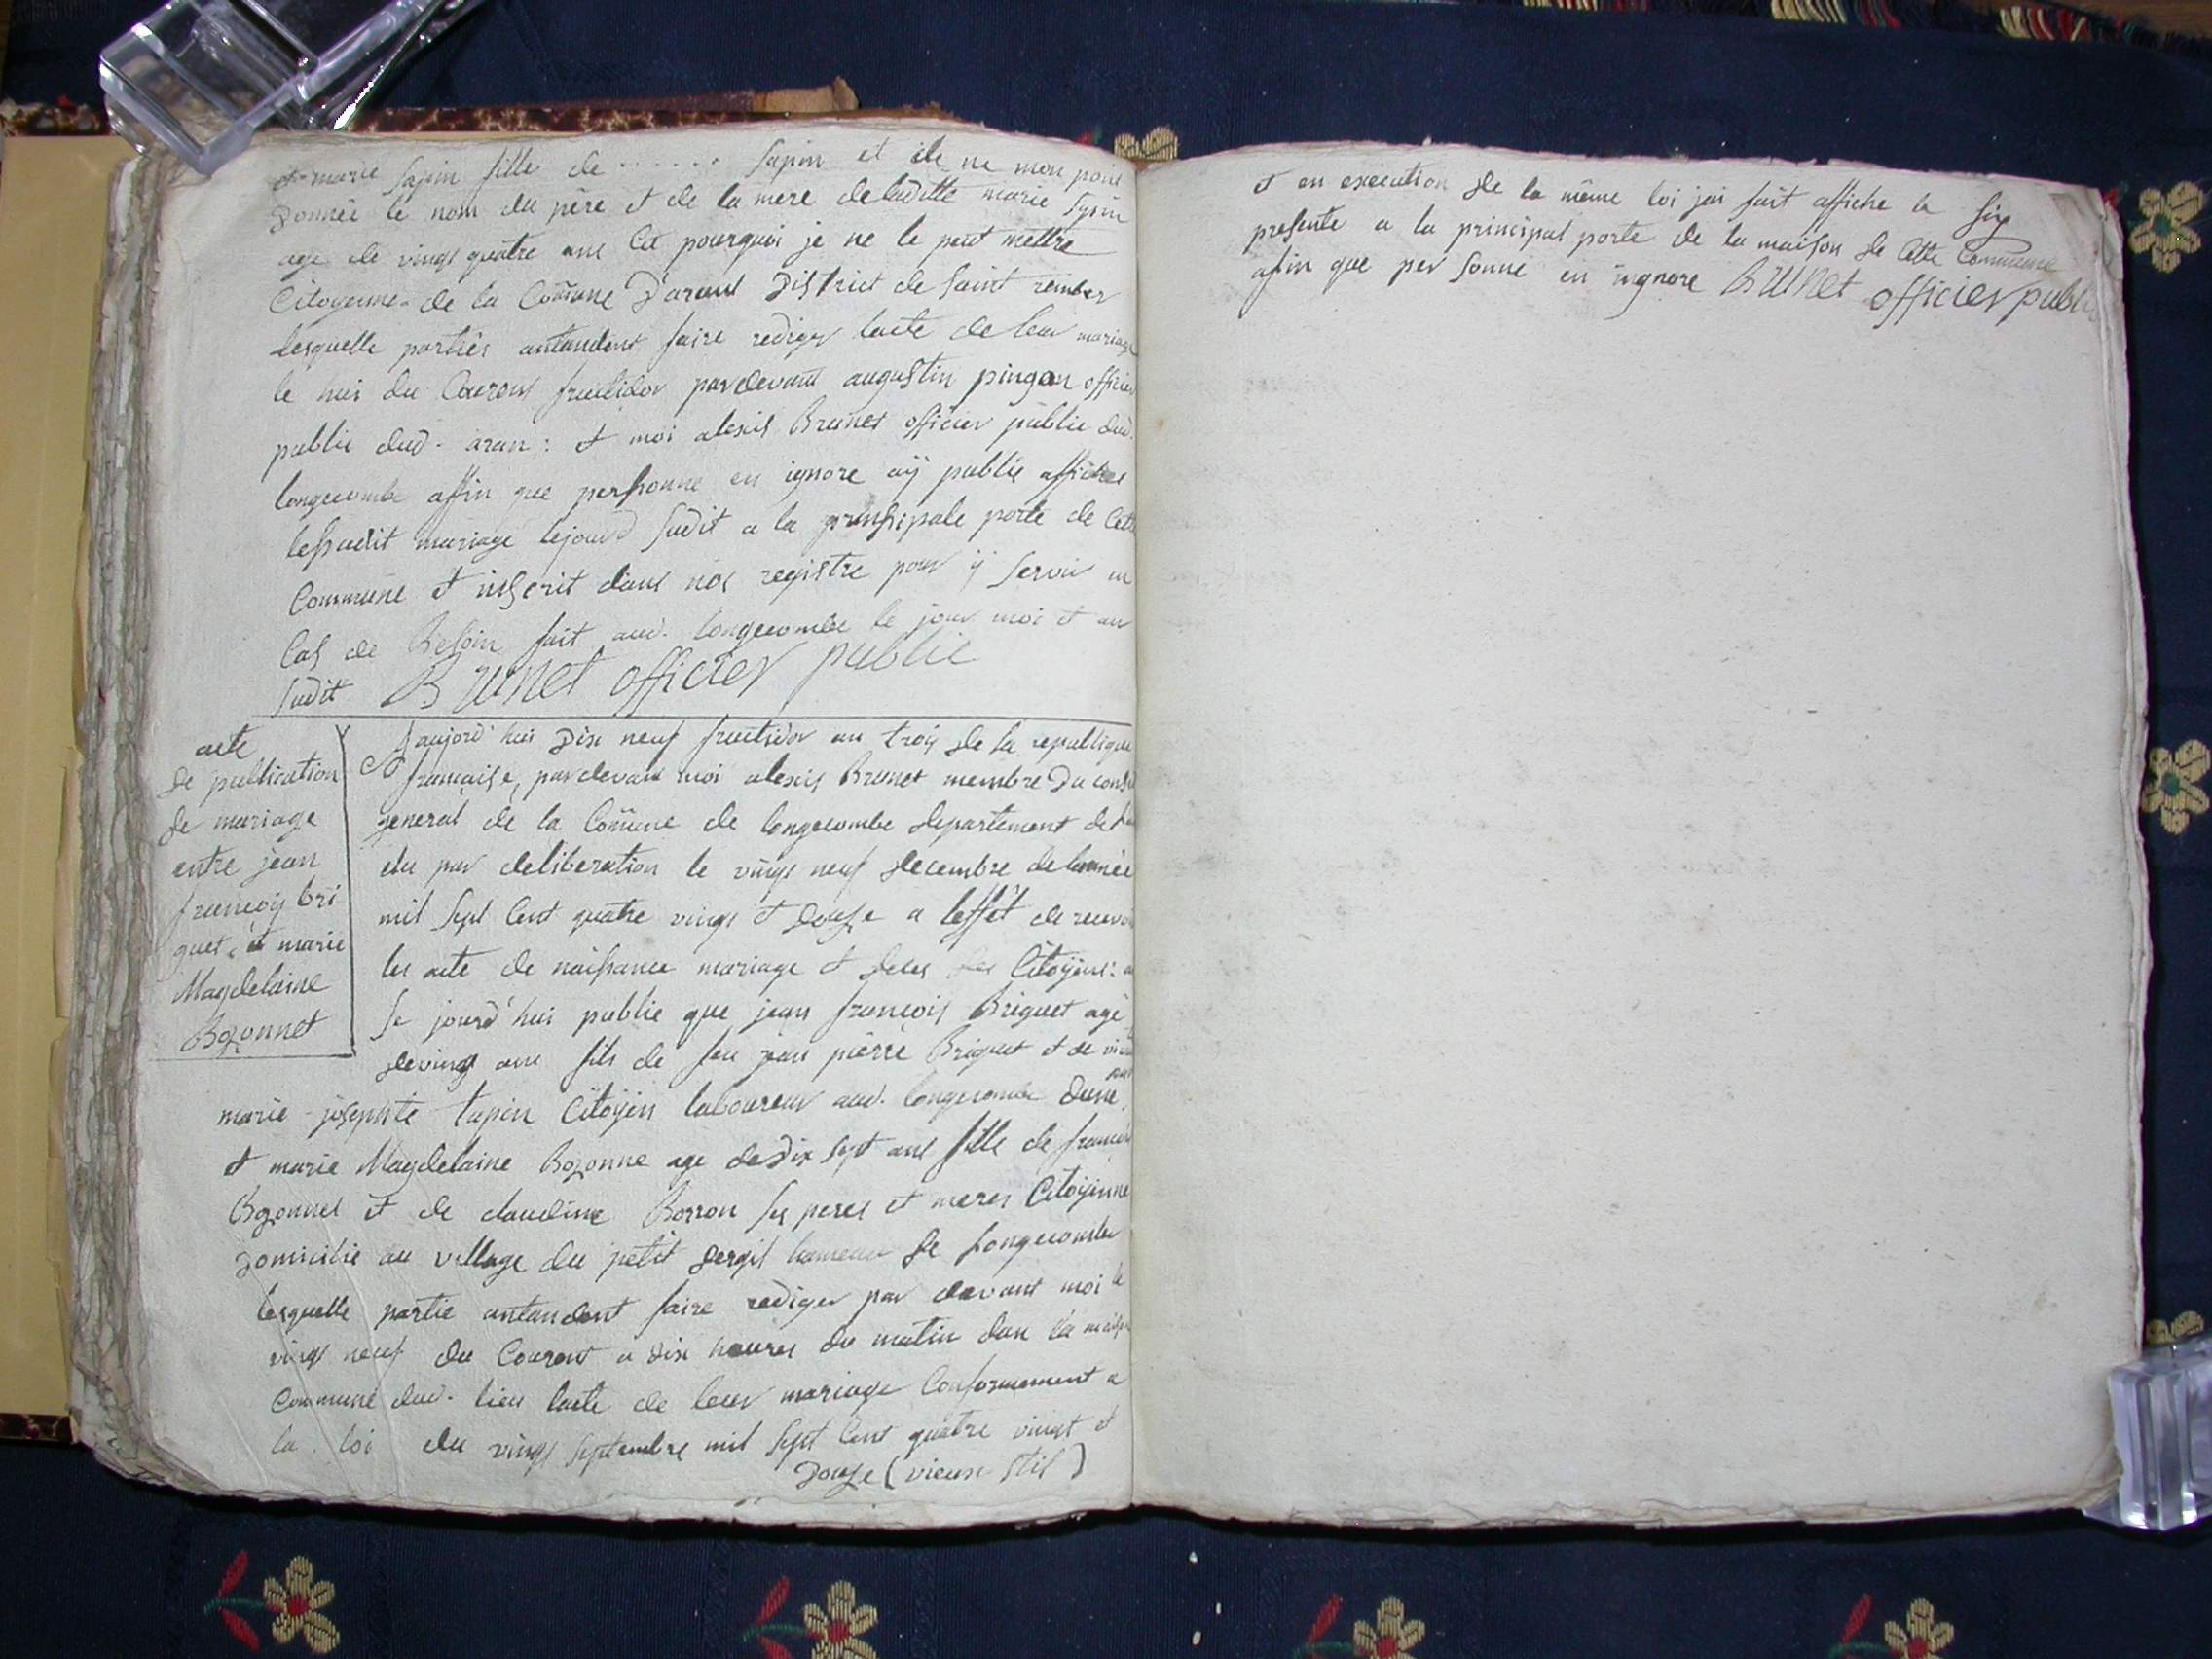 et marie sapin fille de ....... sapin et ile ne mon poin
donnée le nom du père et de la mere de laditte marie sapin
age de vings quatre ans Cet pourquoi je ne le peut mettre
Citoyenne de la Comune Darand District de saint rember
lesquelle parties antandent faire rediger lacte de leur mariage
le huit du Courant fruitidor pardevant augustin pingon officier
public dud. aran : et moi alexis Brunet officier public dud.
longecombe affin que personne en ignore aÿ publie afficher
lesudit mariage lejourd sudit a la prinsipale porte de Cette
Commune et inscrit dans nos registre pour ÿ servir en
Cas de Besoin fait aud. longecombe le jour moi et an
sudit Brunet officier public
acte
de publication
de mariage
entre jean
francois bri
quet, et marie
Magdelaine
Bozonnet
aujord'hui Dix neuf fruitidor an trois de la republique
francaise, pardevant moi alexis Brunet membre du conseil
general de la Comune de longecombe departement de
elu par deliberation le vings neuf decembre de lannée
mil sept Cent quatre vings et douse a leffet de recevoir
les acte de naissance mariage et deces des Citoÿens: a
se jourd'hui publie que jean francois Briquet agé
devings ans fils de feu jean pierre Briquet et de
marie josephte tapin Citoÿen laboureur aud. longecombe dune
part
et marie Magdelaine Bozonne age de dix sept ans fille de francois
Bozonnet et de claudine Borron ses peres et meres Citoÿenne
domicilie au village du petit dergit hameau de longecombe
lesquelle partie antandent faire rediger par devant moi le
vings neuf du Courant a dix heures du matin dan la maison
commune dud. lieu lacte de leur mariage Conformement a
la loi du vings septembre mil sept Cent quatre vingt et
douse (vieux stil)
et en execution de la même loi jai fait affiche la
presente a la principal porte de la maison de Cette Commune
afin que per sonne en ingnore Brunet officier public